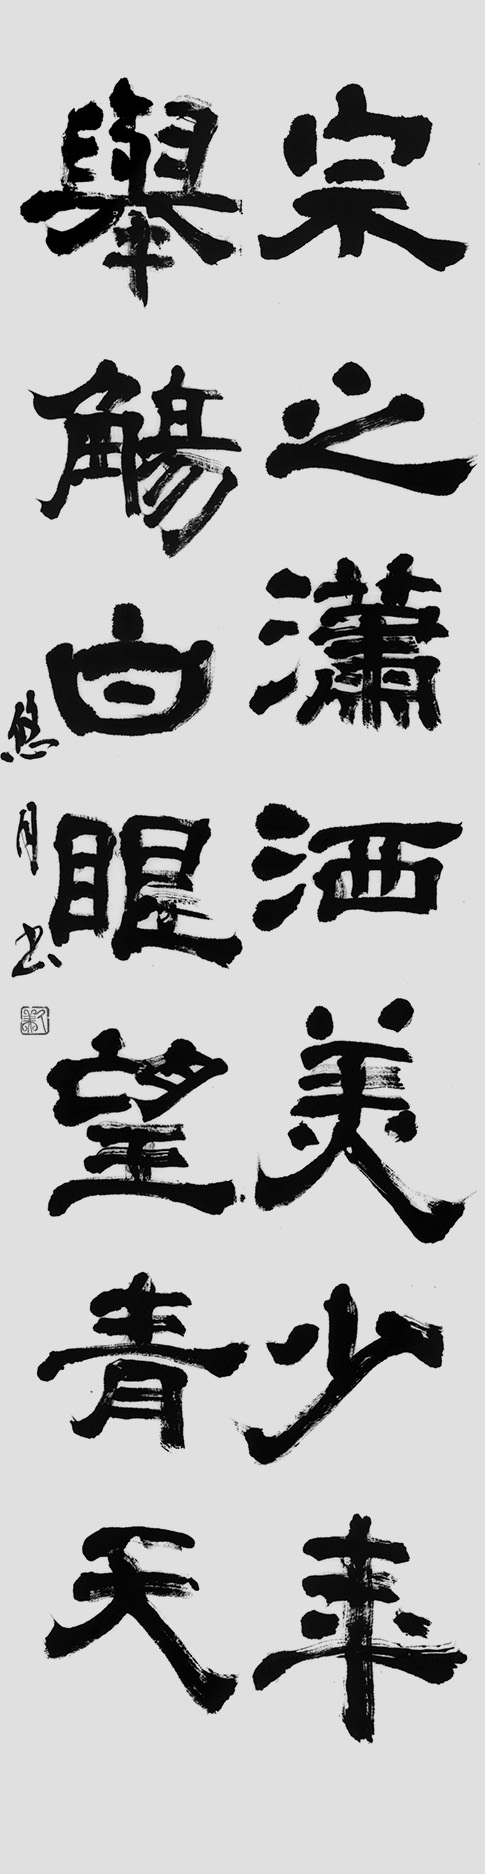 宗之瀟洒美少年
舉觴白眼望青天
悠月書